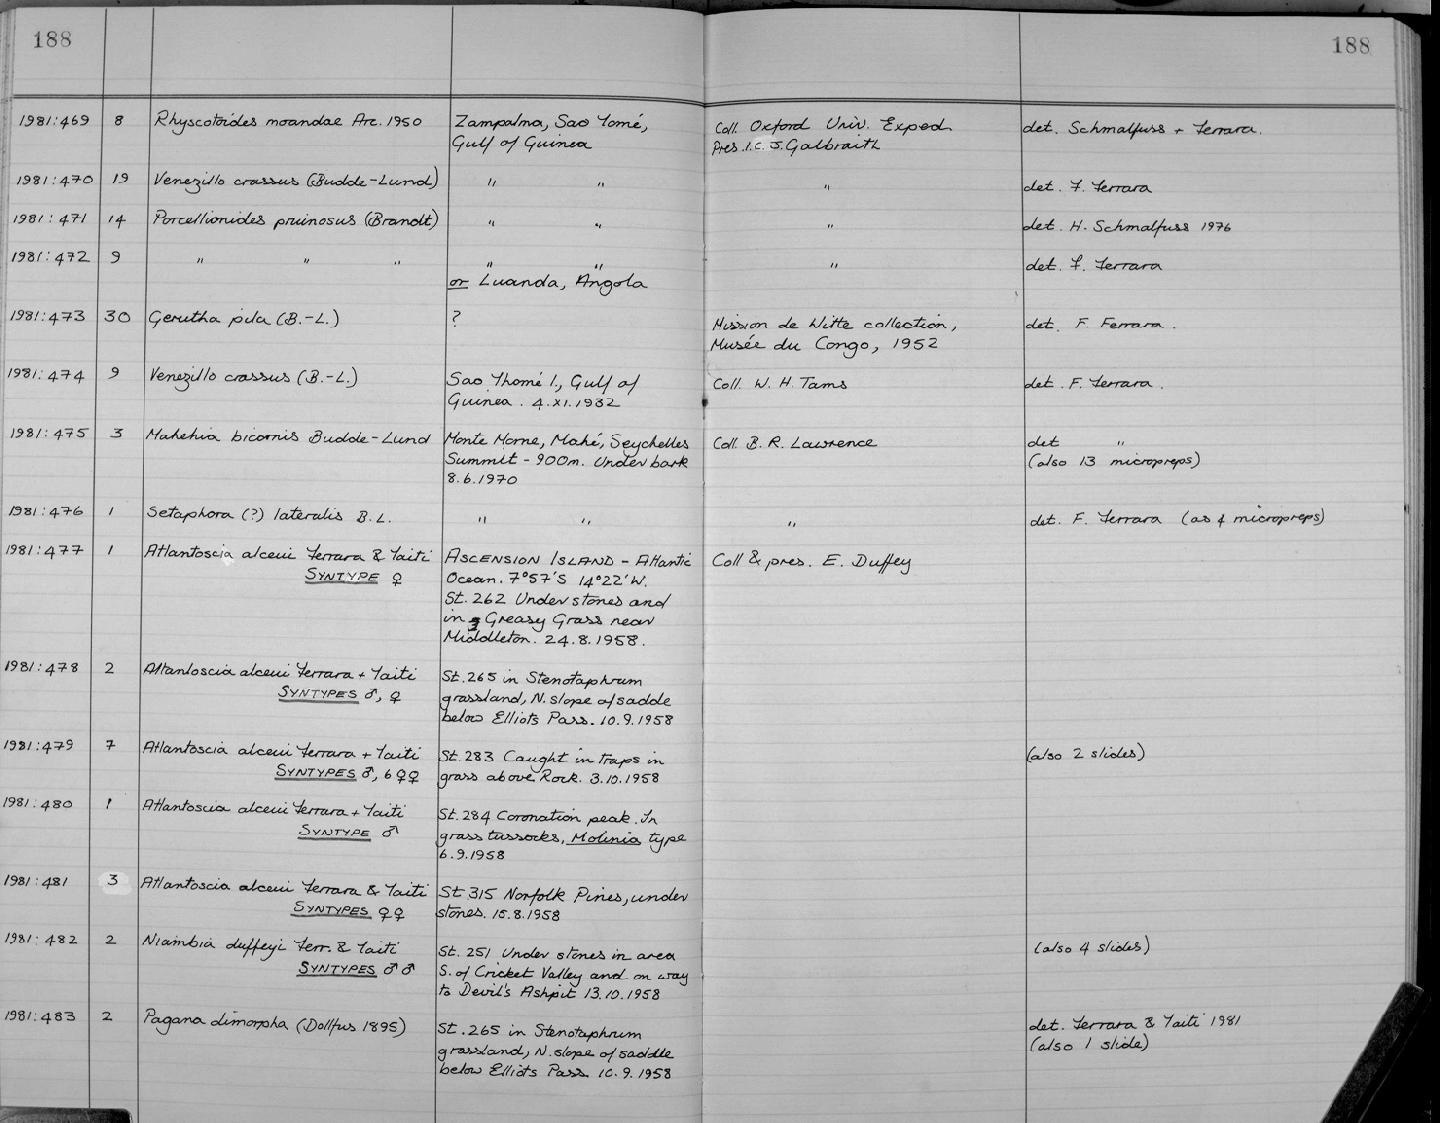 188
188
1981:469 8 Rhyscotoides moandae Arc. 1950 Zampalma, Sao Tomé, Coll. Oxford Univ. Exped det. Schmalfuss + Ferrara.
Gulf of Guinea Pres. I.C.J. Galbraith
1981:470 19 Venezillo crassus (Budde-Lund) " " " det. F. Ferrara
1981:471 14 Porcellionides pruinosus (Brandt) " " " det. H. Schmalfuss 1976
1981:472 9 " " " " " " det. F. Ferrara
or Luanda, Angola
1981:473 30 Gerutha pila (B.-L.) ? Mission de Witte collection, det. F Ferrara.
Musée du Congo, 1952
1981:474 9 Venezillo crassus (B.-L.) Sao Thomé I., Gulf of Coll. W. H. Tams det. F. Ferrara.
Guinea. 4.XI.1932
1981:475 3 Mahehia bicornis Budde-Lund Monte Morne, Mahé, Seychelles Coll. B. R. Lawrence det "
Summit - 900m. Under bark (also 13 micropreps)
8.6.1970
1981:476 1 Setaphora (?) lateralis B.L. " " " det. F. Ferrara (as 4 micropreps)
1981:477 1 Atlantoscia alceui Ferrara & Taiti ASCENSION ISLAND - Atlantic Coll & pres. E. Duffey
SYNTYPE ♀ Ocean. 7°57'S 14°22'W.
St. 262 Under stones and
in Greasy Grass near
Middleton. 24.8.1958.
1981:478 2 Altantoscia alceui Ferrara + Taiti St. 265 in Stenotaphrum
SYNTYPES ♂, ♀ grassland, N. slope of sadde
below Elliots Pass. 10.9.1958
1981:479 7 Atlantoscia alceui Ferrara + Taiti St. 283 Caught in traps in (also 2 slides)
SYNTYPES ♂, 6♀♀ grass above Rock. 3.10.1958
1981:480 1 Atlantoscia alceui Ferrara + Taiti St. 284 Coronation peak. In
SYNTYPE ♂ grass tussocks, Molinia type
6.9.1958
1981:481 3 Atlantoscia alceui Ferrara & Taiti St 315 Norfolk Pines, under
SYNTYPES ♀♀ stones. 15.8.1958
1981:482 2 Niambia duffeyi Ferr. & Taiti St. 251 Under stones in area (also 4 slides)
SYNTYPES ♂♂ S. of Cricket Valley and on way
to Devil's Ashpit 13.10.1958
1981:483 2 Pagana dimorpha (Dollfus 1895) St. 265 in Stenotaphrum det. Ferrara & Taiti 1981
grassland, N. slope of saddle (also 1 slide)
below Elliots Pass 10.9.1958